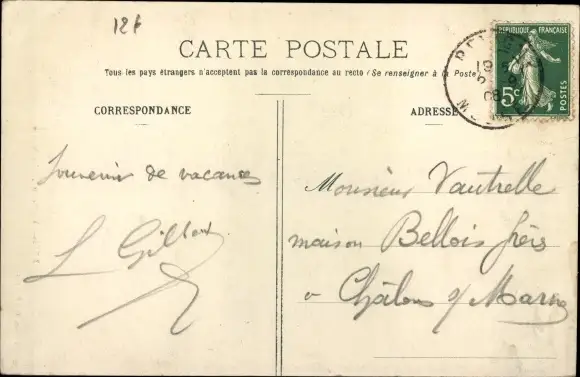 12f
CARTE POSTALE
Tous les pays étrangers n'acceptent pas la correspondance au recto (Se renseigner à la Poste)
CORRESPONDANCE
ADRESSE
RÉPUBLIQUE FRANÇAISE
5c
POSTES
Souvenir de vacances
L Gillant
Monsieur Vautrelle
maison Bellois frères
à Châlons s/ Marne